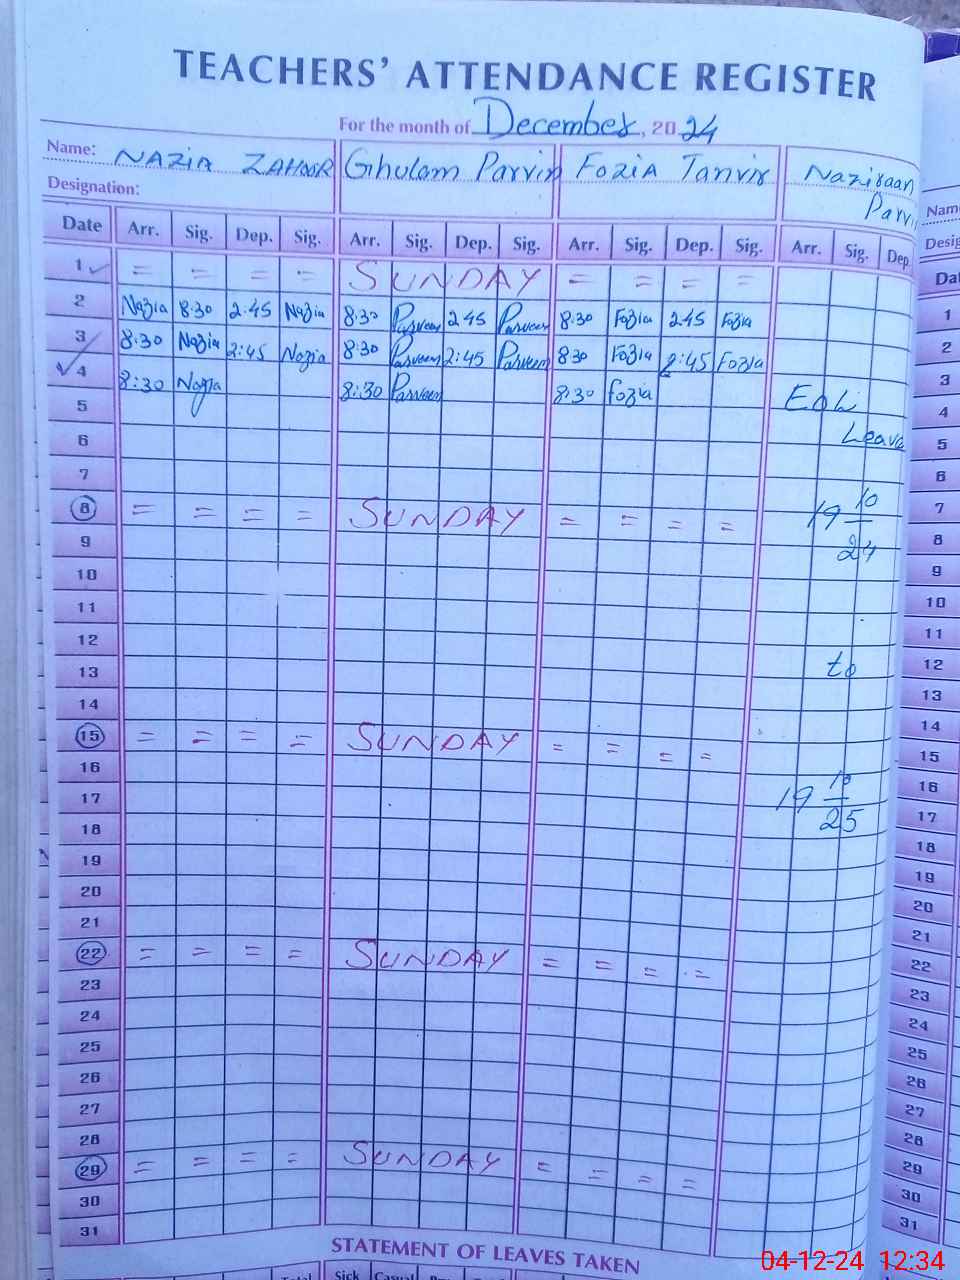 TEACHERS' ATTENDANCE REGISTER
For the month of December, 2024
Name: NAZIA ZAHOOR Ghulam Parvin FOZIA Tanvir Naziraan
Designation: Parvi
Date Arr. Sig. Dep. Sig. Arr. Sig. Dep. Sig. Arr. Sig. Dep. Sig. Arr. Sig. Dep.
1 = = = = SUNDAY = = = =
2 Nazia 8:30 2:45 Nazia 8:30 Parveen 2:45 Parveen 8:30 Fozia 2:45 Fozia
3 8:30 Nazia 2:45 Nazia 8:30 Parveen 2:45 Parveen 830 Fozia 2:45 Fozia
4 8:30 Nazia 8:30 Parveen 8:30 Fozia
5 Leave
6
7
8 = = = = SUNDAY = = = = 19 10
9 24
10
11
12
13 to
14
15 = = = = SUNDAY = = = =
16
17 19 10
18 25
19
20
21
22 = = = = SUNDAY = = = =
23
24
25
26
27
28
29 = = = = SUNDAY = = = =
30
31
STATEMENT OF LEAVES TAKEN
Total Sick Casual
Nam
Desig
Da
1
2
3
4
5
6
7
8
9
10
11
12
13
14
15
16
17
18
19
20
21
22
23
24
25
26
27
28
29
30
31
04-12-24 12:34